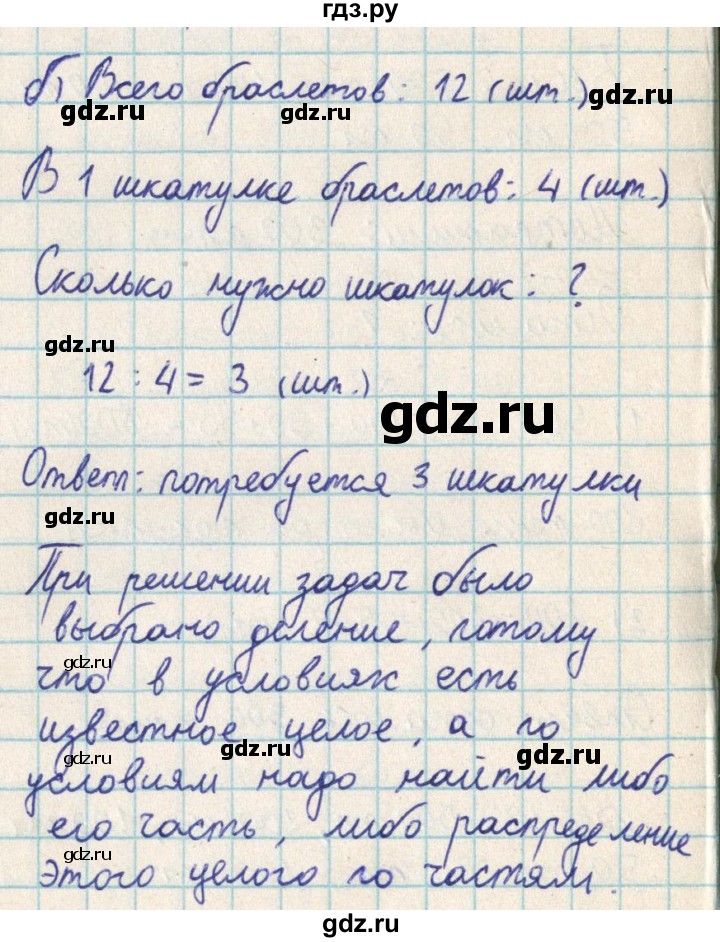 гдз.ру
б) Всего браслетов: 12 (шт.)
gdz.ru
gdz.ru
gdz.ru
В 1 шкатулке браслетов: 4 (шт.)
Сколько нужно шкатулок: ?
gdz.ru
12 : 4 = 3 (шт.)
gdz.ru
Ответ: потребуется 3 шкатулки
gdz.ru
При решении задач было
выбрано деление, потому
gdz.ru
что в условиях есть
известное целое, а по
gdz.ru
gdz.ru
условиям надо найти либо
его часть, либо распределение
gdz.ru
gdz.ru
этого целого по частям.
gdz.ru